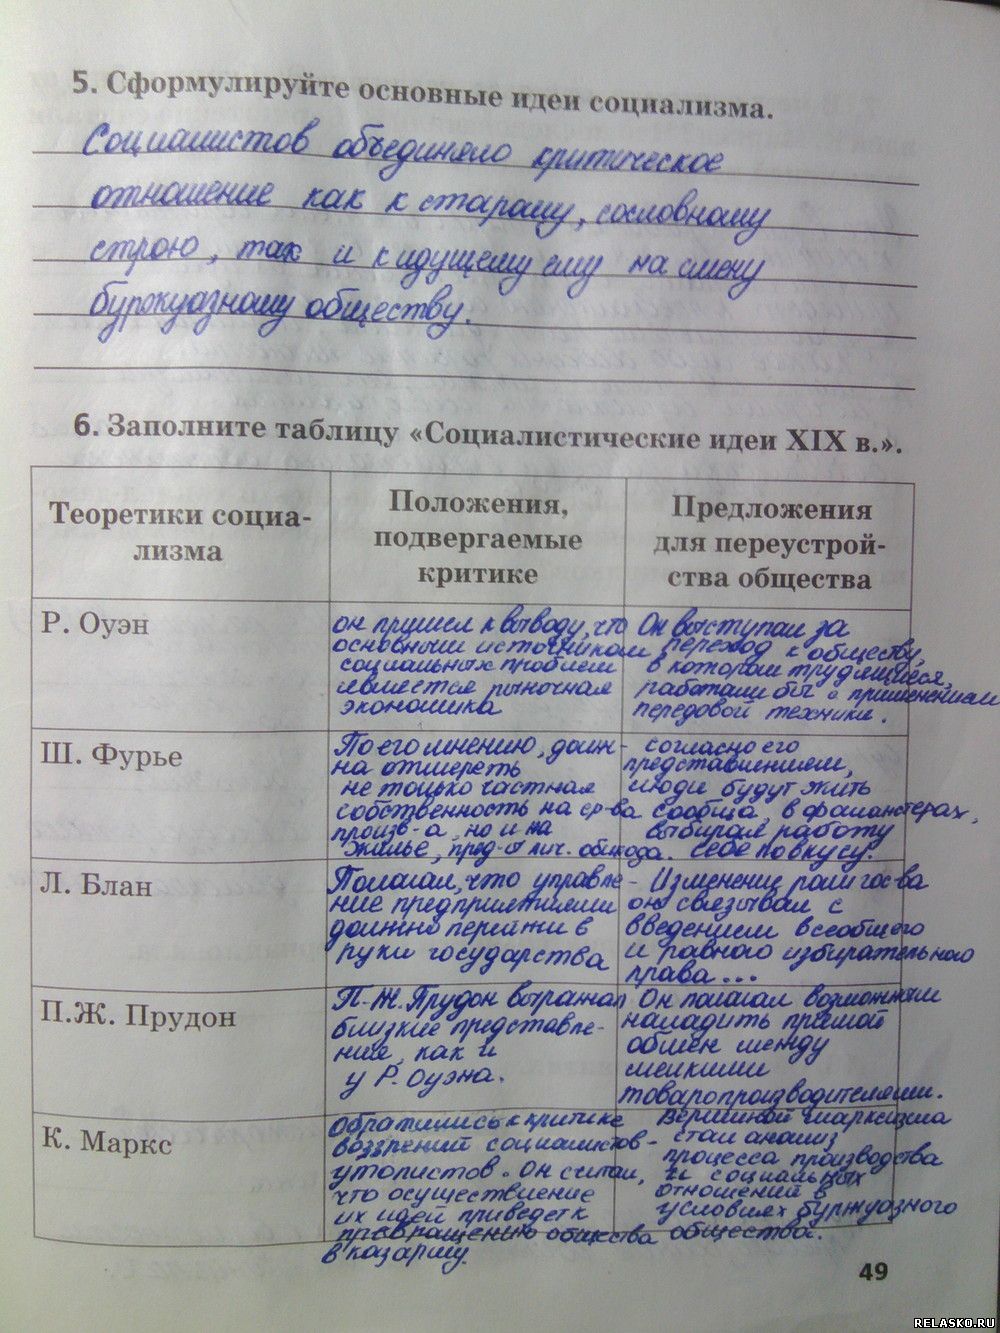 5. Сформулируйте основные идеи социализма.
Социалистов объединяло критическое
отношение как к старому, сословному
строю, так и к идущему ему на смену
буржуазному обществу.
6. Заполните таблицу «Социалистические идеи XIX в.».
Теоретики социа-
лизма
Положения,
подвергаемые
критике
Предложения
для переустрой-
ства общества
Р. Оуэн
он пришел к выводу, что
основным источником
социальных проблем
является рыночная
экономика
Он выступал за
переход к обществу,
в котором трудящиеся,
работали бы с применением
передовой техники.
Ш. Фурье
По его мнению, долж-
на отмереть
не только частная
собственность на ср-ва
произв-а, но и на
жилье, пред-ы лич. обихода.
согласно его
представлениям,
люди будут жить
сообща, в фаланстерах,
выбирая работу
себе по вкусу.
Л. Блан
Полагал, что управле-
ние предприятиями
должно перейти в
руки государства
Изменение роли гос-ва
он связывал с
введением всеобщего
и равного избирательного
права...
П.Ж. Прудон
П.Ж. Прудон выражал
близкие представле-
ния, как и
у Р. Оуэна.
Он полагал возможным
наладить прямой
обмен между
мелкими
товаропроизводителями.
К. Маркс
обратились к критике
воззрений социалистов-
утопистов. Он считал,
что осуществление
их идей приведет к
превращению общества
в казарму.
Вершиной марксизма
стал анализ
процесса производства
и социальных
отношений в
условиях буржуазного
общества.
49
RELASKO.RU